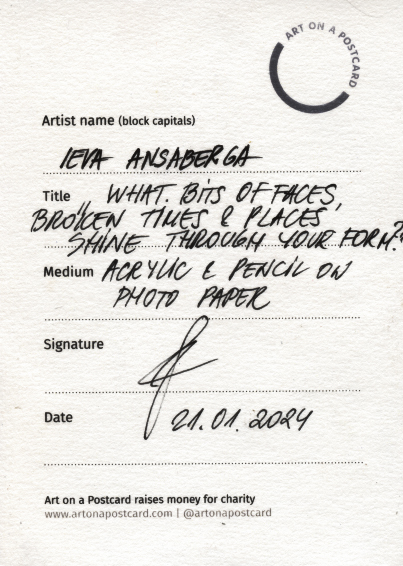 ART ON A POSTCARD
Artist name (block capitals)
IEVA ANSABERGA
Title „ WHAT BITS OF FACES,
BROKEN TIMES & PLACES
SHINE THROUGH YOUR FORM?
Medium ACRYLIC & PENCIL ON
PHOTO PAPER
Signature
Date 21.01.2024
Art on a Postcard raises money for charity
www.artonapostcard.com | @artonapostcard